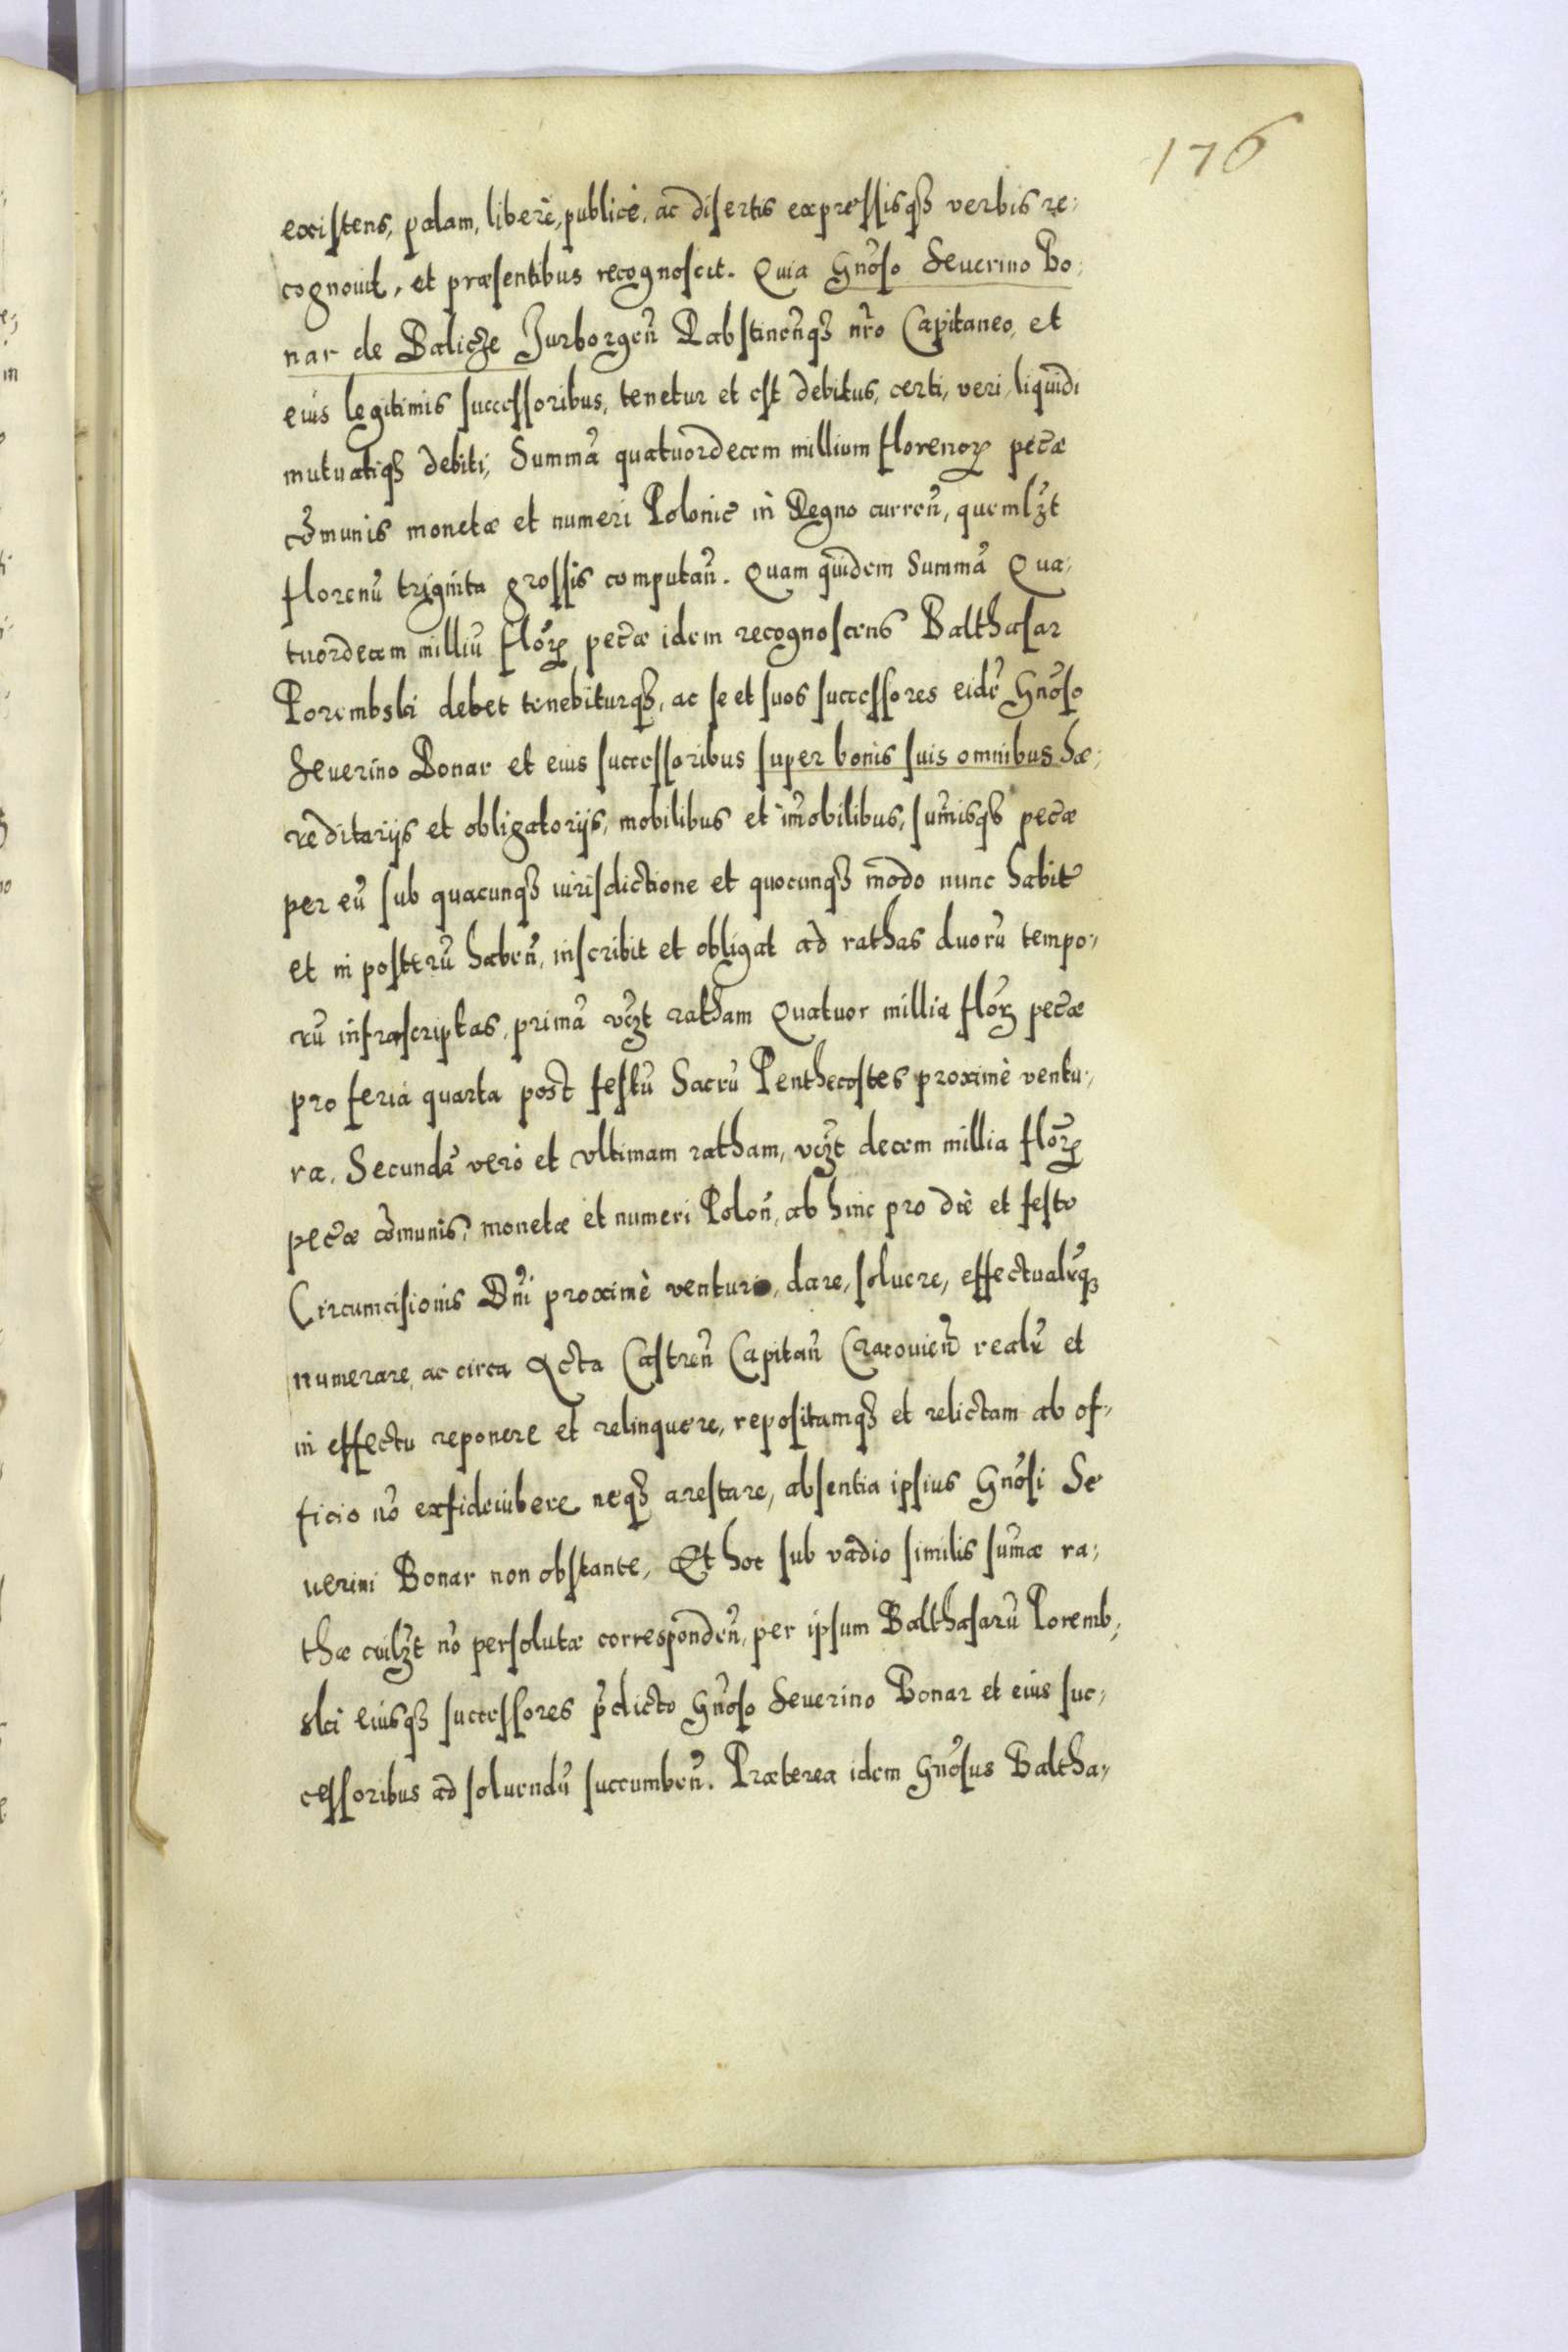 176
existens, palam, liberè, publicè, ac disertis expressisq₃ verbis re-
cognovit, et præsentibus recognoscit. Quia Gnōso Seuerino Bo-
nar de Balicze Jurborgeñ Rabstineñq₃ nr̃o Capitaneo, et
eius legitimis successoribus, tenetur et est debitus, certi, veri, liquidi
mutuatiq₃ debiti, Summā quatuordecem millium florenoꝝ pecæ
cōmunis monetæ et numeri Polonic̃ in Regno curreñ, quemlꝫt
florenū triginta grossis computañ. Quam quidem Summā Qua-
tuordecem milliū flōꝝ pecæ idem recognoscens Balthasar
Porembski debet tenebiturq₃, ac se et suos successores eidē Gnōso
Seuerino Bonar et eius successoribus super bonis suis omnibus hæ-
reditarijs et obligatorijs, mobilibus et im̄obilibus, sum̄isq₃ pecæ
per eū sub quacunq₃ iurisdictione et quocunq₃ modo nunc habit̃
et in posterū habeñ, inscribit et obligat ad rathas duorū tempo-
rū infrascriptas, primā vꝫt ratham Quatuor millia flōꝝ pecæ
pro feria quarta post festū Sacrū Penthecostes proximè ventu-
ræ. Secundā verò et vltimam ratham, vꝫt decem millia flōꝝ
pecæ cōmunis, monetæ et numeri Poloñ, ab hinc pro die et festo
Circumcisionis Dñi proximè venturo, dare, soluere, effectualr̃q₃
numerare, ac circa Acta Castreñ Capitañ Cracovieñ realr̃ et
in effectu reponere et relinquere, repositamq₃ et relictam ab of-
ficio nō exfideiubere neq₃ arestare, absentia ipsius Gnōsi Se
uerini Bonar non obstante, Et hoc sub vadio similis sum̄æ ra-
thæ cuilꝫt nō persolutæ correspondeñ, per ipsum Balthasarū Poremb-
ski eiusq₃ successores p̃dicto Gnōso Seuerino Bonar et eius suc-
cessoribus ad soluendū succumbeñ. Præterea idem Gnōsus Baltha-